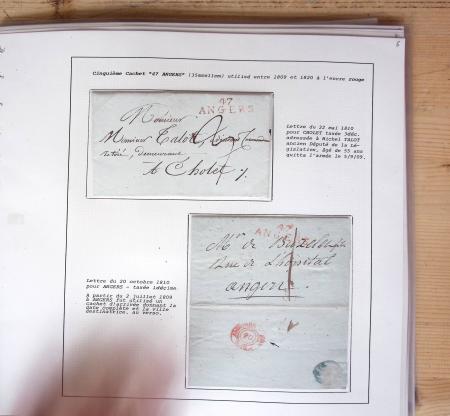 Cinquième Cachet "47 ANGERS" (35mmx11mm) utilisé entre 1809 et 1820 à l'encre rouge
47
ANGERS
Monsieur
Monsieur Talot
notre, Demeurant
A Cholet
Lettre du 22 mai 1810
pour CHOLET taxée 3déc.
adressée à Michel TALOT
ancien Député de la Lé-
gislative, âgé de 55 ans
quitta l'armée le 5/9/09.
47
ANGERS
Mr. de
Rue de L'hopital
angers
Lettre du 20 octobre 1810
pour ANGERS - taxée 1décime
A partir du 2 juillet 1809
à ANGERS fut utilisé un
cachet d'arrivée donnant la
date complète et la ville
destinatrice, au verso.